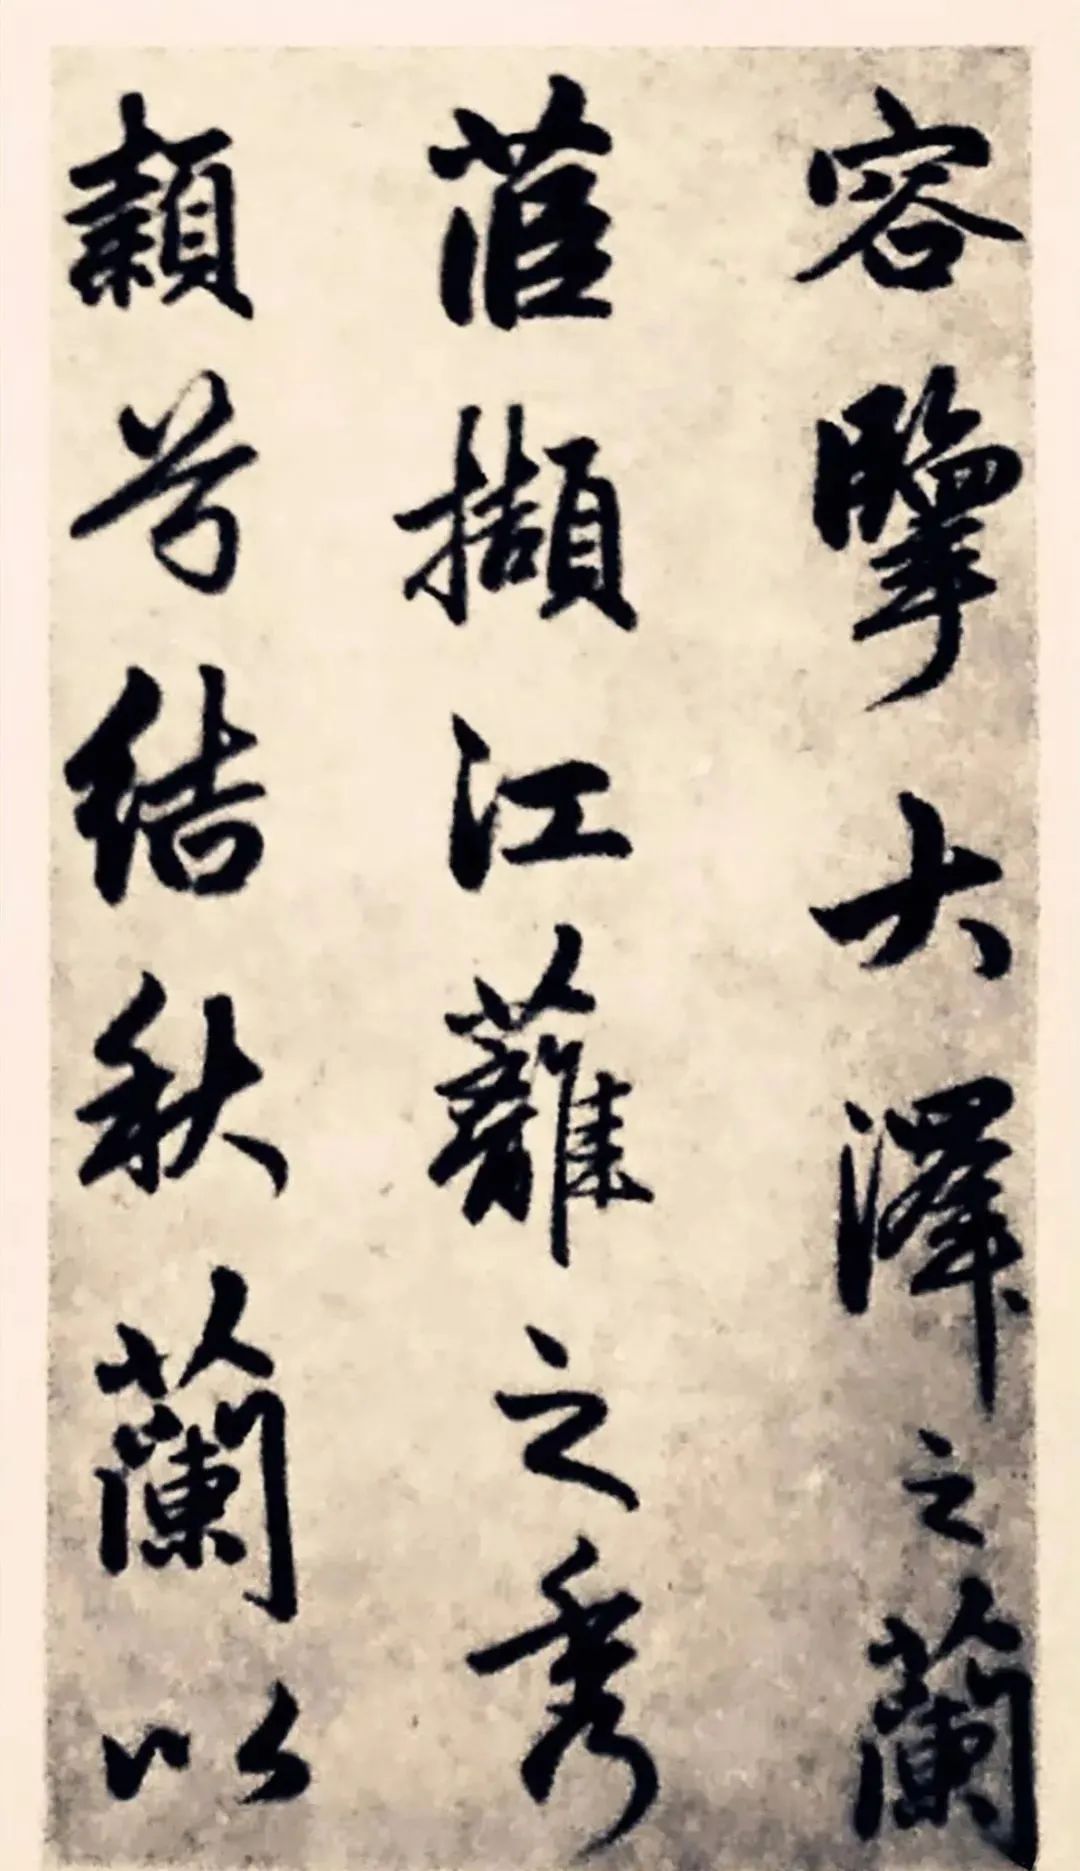 容擥大澤之蘭
茝擷江蘺之秀
穎兮結秋蘭以